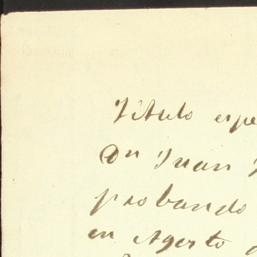 Título espe
Dn Juan
probando
en Agosto